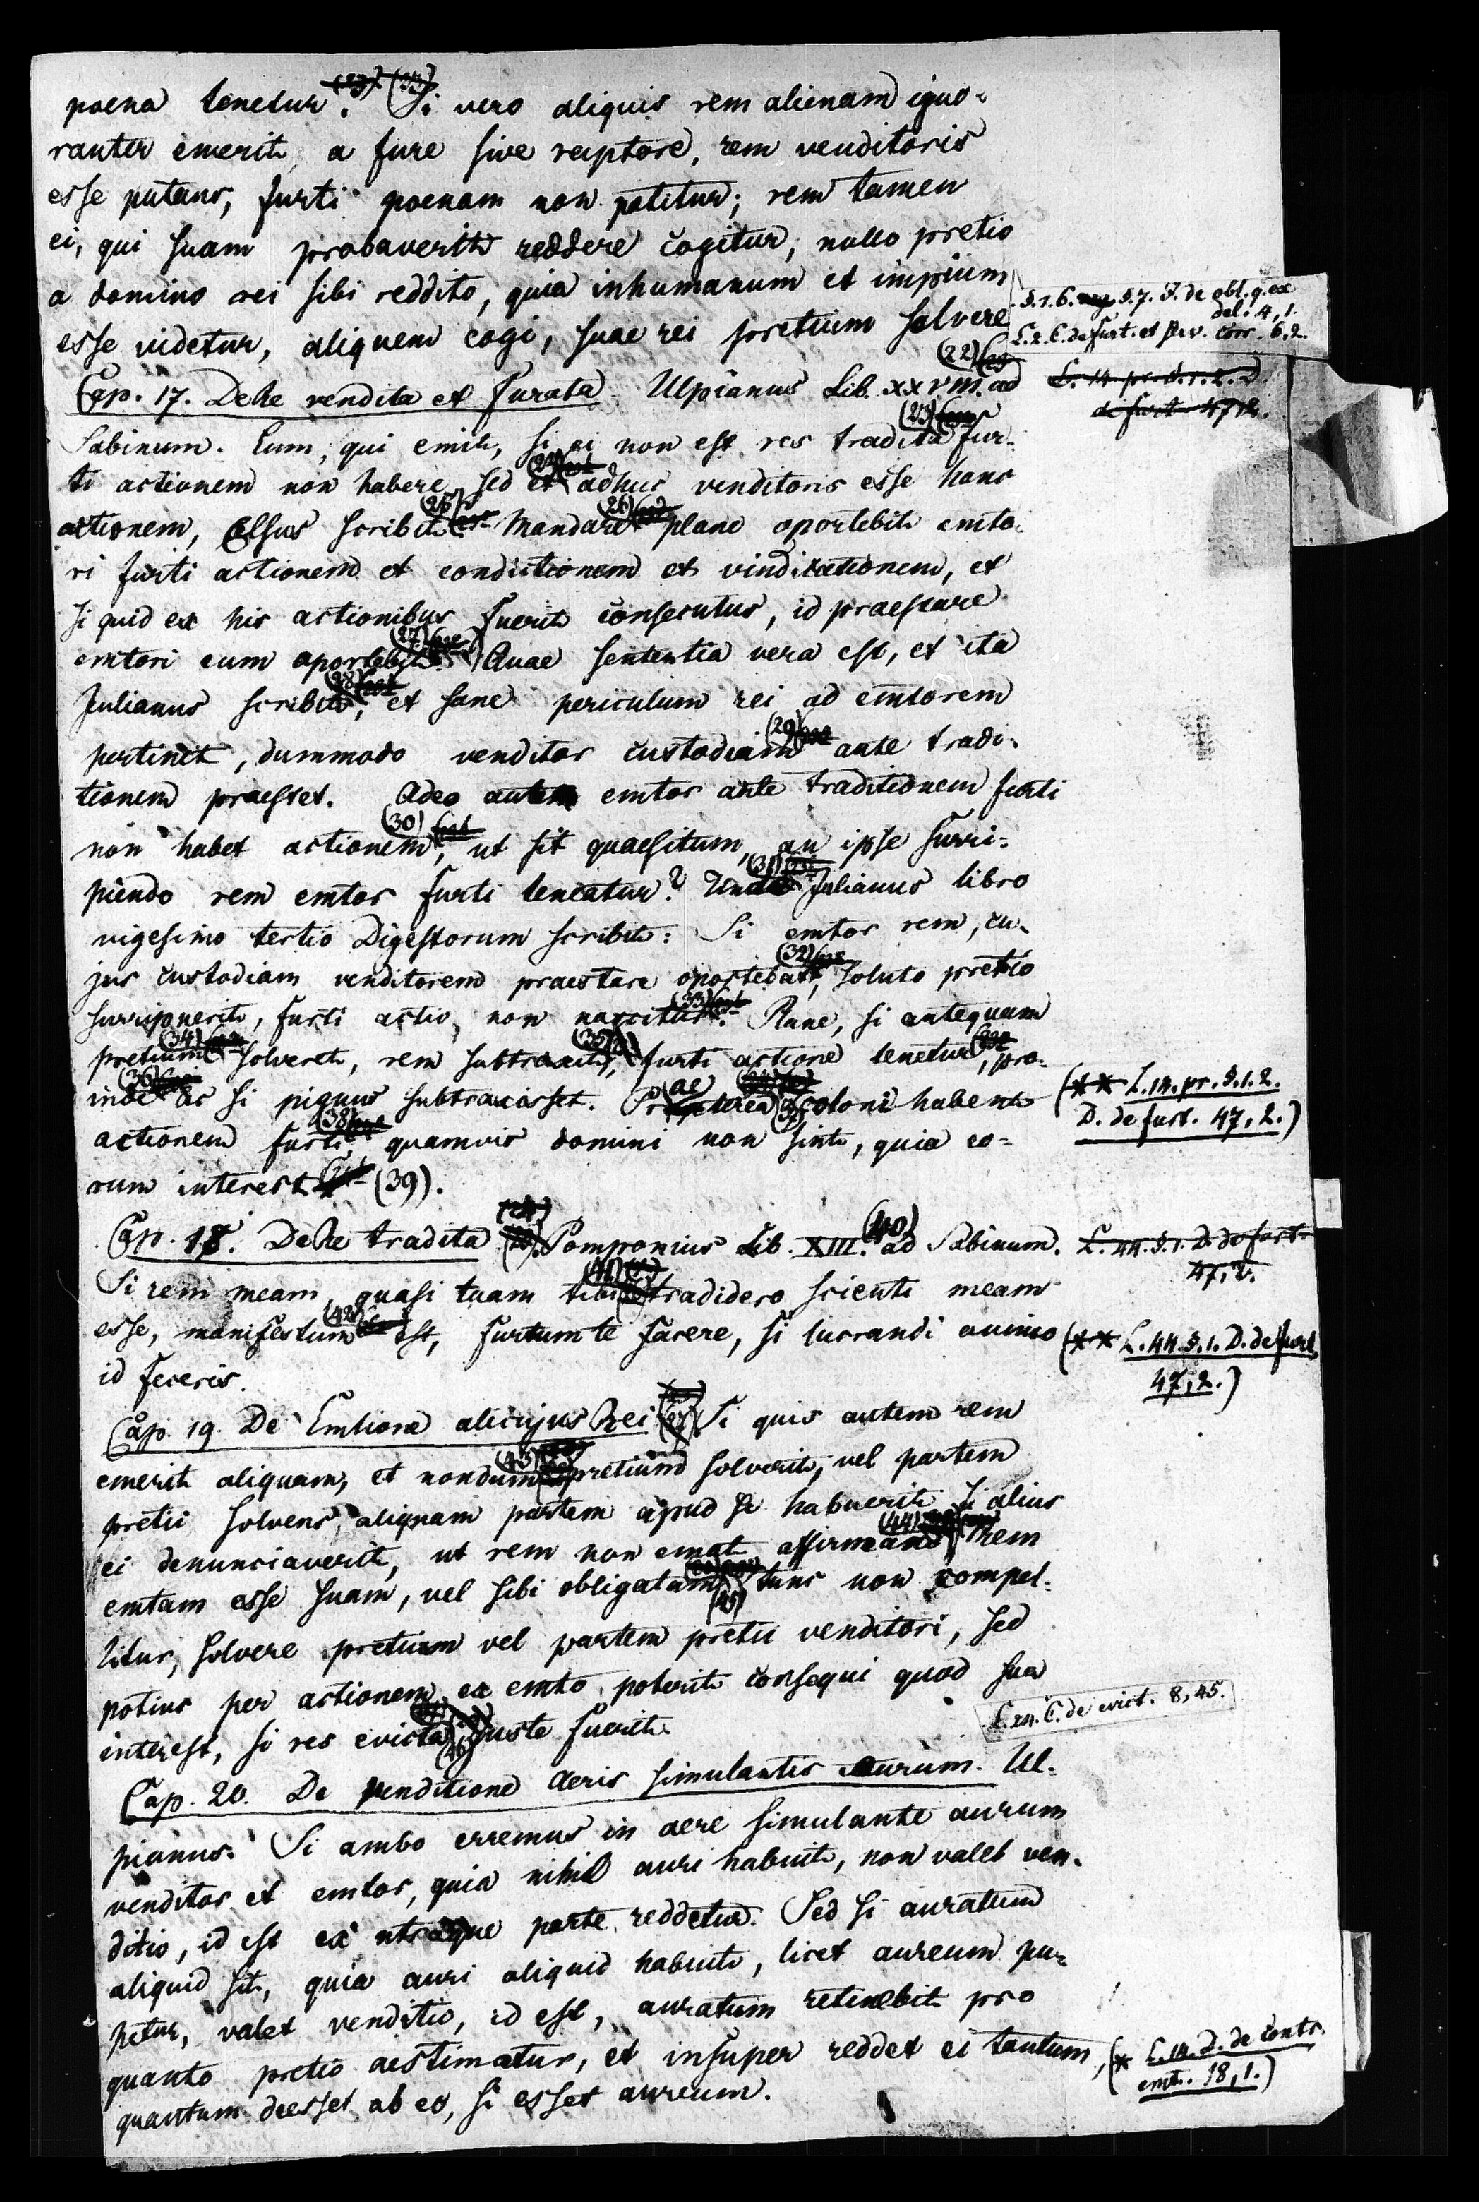 poena tenetur. Si vero aliquis rem alienam igno-
ranter emerit, a fure sive raptore, rem venditoris
esse putans, furti poenam non patitur; rem tamen
ei, qui suam probaverit reddere cogitur, nullo pretio
a domino rei sibi reddito, quia inhumanum et impium
esse videtur, aliquem cogi, suae rei pretium solvere
§. 1. 6. §. 7. J. de obl. q. ex
del. 4, 1.
L. 2. C. de furt. et serv. corr. 6, 2.
(22)
Cap. 17. De Re vendita et furata Ulpianus Lib. XXVIII. ad
L. 14. pr. §. 1. 2. D.
de furt. 47, 2.
(23)
Sabinum. Eum, qui emit, si ei non est res tradita fur-
(24)
ti actionem non habere, sed et adhuc venditoris esse hanc
(25) (26)
actionem, Celsus scribit. Mandare plane oportebit emto-
ri furti actionem et condictionem et vindicationem, et
si quid ex his actionibus fuerit consecutus, id praestare
(27)
emtori eum oportebit. Quae sententia vera est, et ita
(28)
Julianus scribit, et sane periculum rei ad emtorem
(29)
pertinet, dummodo venditor custodiam ante tradi-
tionem praestet. Adeo autem emtor ante traditionem furti
(30)
non habet actionem, ut sit quaesitum, an ipse surri-
(31)
piendo rem emtor furti teneatur? Unde Julianus libro
vigesimo tertio Digestorum scribit: Si emtor rem, cu-
(32)
jus custodiam venditorem praestare oportebat, soluto pretio
(33)
surripuerit, furti actio non nascitur. Plane, si antequam
(34) (35)
pretium solveret, rem subtraxit, furti actione tenetur, pro-
(36)
inde ac si pignus subtraxisset. Praeterea coloni habent
(** L. 14. pr. §. 1. 2.
D. de furt. 47, 2.)
(38)
actionem furti quamvis domini non sint, quia eo-
rum interest (39).
(40)
Cap. 18. De Re tradita Pomponius Lib. XIII. ad Sabinum.
L. 44. §. 1. D. de furt.
47, 2.
(41)
Si rem meam, quasi tuam tibi tradidero scienti meam
(42)
esse, manifestum est, furtum te facere, si lucrandi animo
(** L. 44. §. 1. D. de furt.
47, 2.)
id feceris.
Cap. 19. De Emtione alicujus Rei Si quis autem rem
(43)
emerit aliquam, et nondum pretium solverit, vel partem
pretii solvens, aliquam partem apud se habuerit, si alius
(44)
ei denunciaverit, ut rem non emat affirmans rem
emtam esse suam, vel sibi obligatam tunc non compel-
(45)
litur, solvere pretium vel partem pretii venditori, sed
potius per actionem ex emto poterit consequi quod sua
L. 24. C. de evict. 8, 45.
interest, si res evicta juste fuerit.
(46)
Cap. 20. De Venditione Aeris simulantis aurum. Ul-
pianus. Si ambo erremus in aere simulante aurum
venditor et emtor, quia nihil auri habuit, non valet ven-
ditio, id est ex utraque parte reddetur. Sed si auratum
aliquid sit, quia auri aliquid habuit, licet aureum pu-
tetur, valet venditio, id est, auratum retinebit pro
quanto pretio aestimatur, et insuper reddet ei tantum,
(* L. 14. D. de contr.
emt. 18, 1.)
quantum deesset ab eo, si esset aureum.